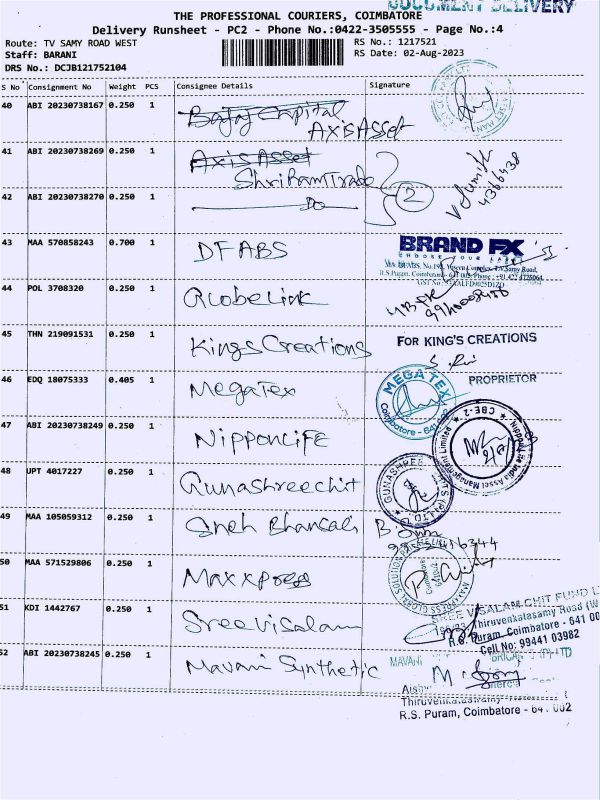 DOCUMENT DELIVERY
THE PROFESSIONAL COURIERS, COIMBATORE
Delivery Runsheet - PC2 - Phone No.:0422-3505555 - Page No.:4
Route: TV SAMY ROAD WEST
RS No.: 1217521
Staff: BARANI
RS Date: 02-Aug-2023
DRS No.: DCJB121752104
S No Consignment No Weight PCS Consignee Details Signature
40 ABI 20230738167 0.250 1 Bajaj Capital
Axis Asset
41 ABI 20230738269 0.250 1 Axis Asset
Shri Ram Trade
42 ABI 20230738270 0.250 1 Do 2
43 MAA 570858243 0.700 1 DFABS
BRAND FX
44 POL 3708320 0.250 1 GlobeLink
45 THN 219091531 0.250 1 Kings Creations
FOR KING'S CREATIONS
PROPRIETOR
46 EDQ 18075333 0.405 1 MegaTex
MEGA TEX
47 ABI 20230738249 0.250 1 NipponLIFE
Nippon Life India Asset Management Limited CBE-2
48 UPT 4017227 0.250 1 Gunashreechit
49 MAA 105059312 0.250 1 Sneh Bhansali
50 MAA 571529806 0.250 1 Maxxpress
51 KDI 1442767 0.250 1 Sree Visalam
SREE VISALAM CHIT FUND L
Thiruvenkatasamy Road (W
R.S. Puram, Coimbatore - 641 00
Cell No: 99441 03982
52 ABI 20230738245 0.250 1 Mavani Synthetic
MAVANI
R.S. Puram, Coimbatore - 641 002